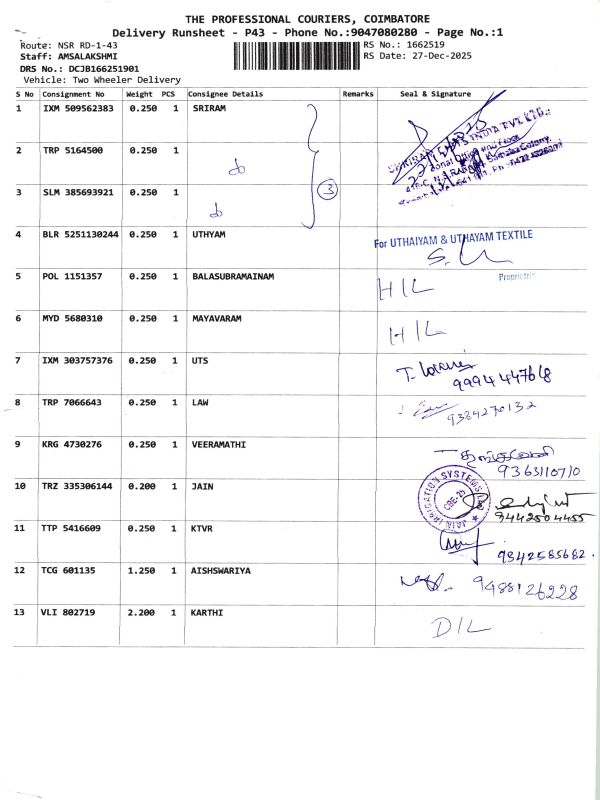 THE PROFESSIONAL COURIERS, COIMBATORE
Delivery Runsheet - P43 - Phone No.:9047080280 - Page No.:1
Route: NSR RD-1-43
RS No.: 1662519
Staff: AMSALAKSHMI
RS Date: 27-Dec-2025
DRS No.: DCJB166251901
Vehicle: Two Wheeler Delivery
S No Consignment No Weight PCS Consignee Details Remarks Seal & Signature
1 IXM 509562383 0.250 1 SRIRAM
2 TRP 5164500 0.250 1
3 SLM 385693921 0.250 1
3
4 BLR 5251130244 0.250 1 UTHYAM
For UTHAIYAM & UTHAYAM TEXTILE
Proprietrix
5 POL 1151357 0.250 1 BALASUBRAMAINAM H/L
6 MYD 5680310 0.250 1 MAYAVARAM H/L
7 IXM 303757376 0.250 1 UTS
9994447618
8 TRP 7066643 0.250 1 LAW 9384270132
9 KRG 4730276 0.250 1 VEERAMATHI
9363110710
10 TRZ 335306144 0.200 1 JAIN
JAIN IRRIGATION SYSTEMS LTD
CBE-25
9442504455
11 TTP 5416609 0.250 1 KTVR
9842585682.
12 TCG 601135 1.250 1 AISHSWARIYA 9488126228
13 VLI 802719 2.200 1 KARTHI D/L